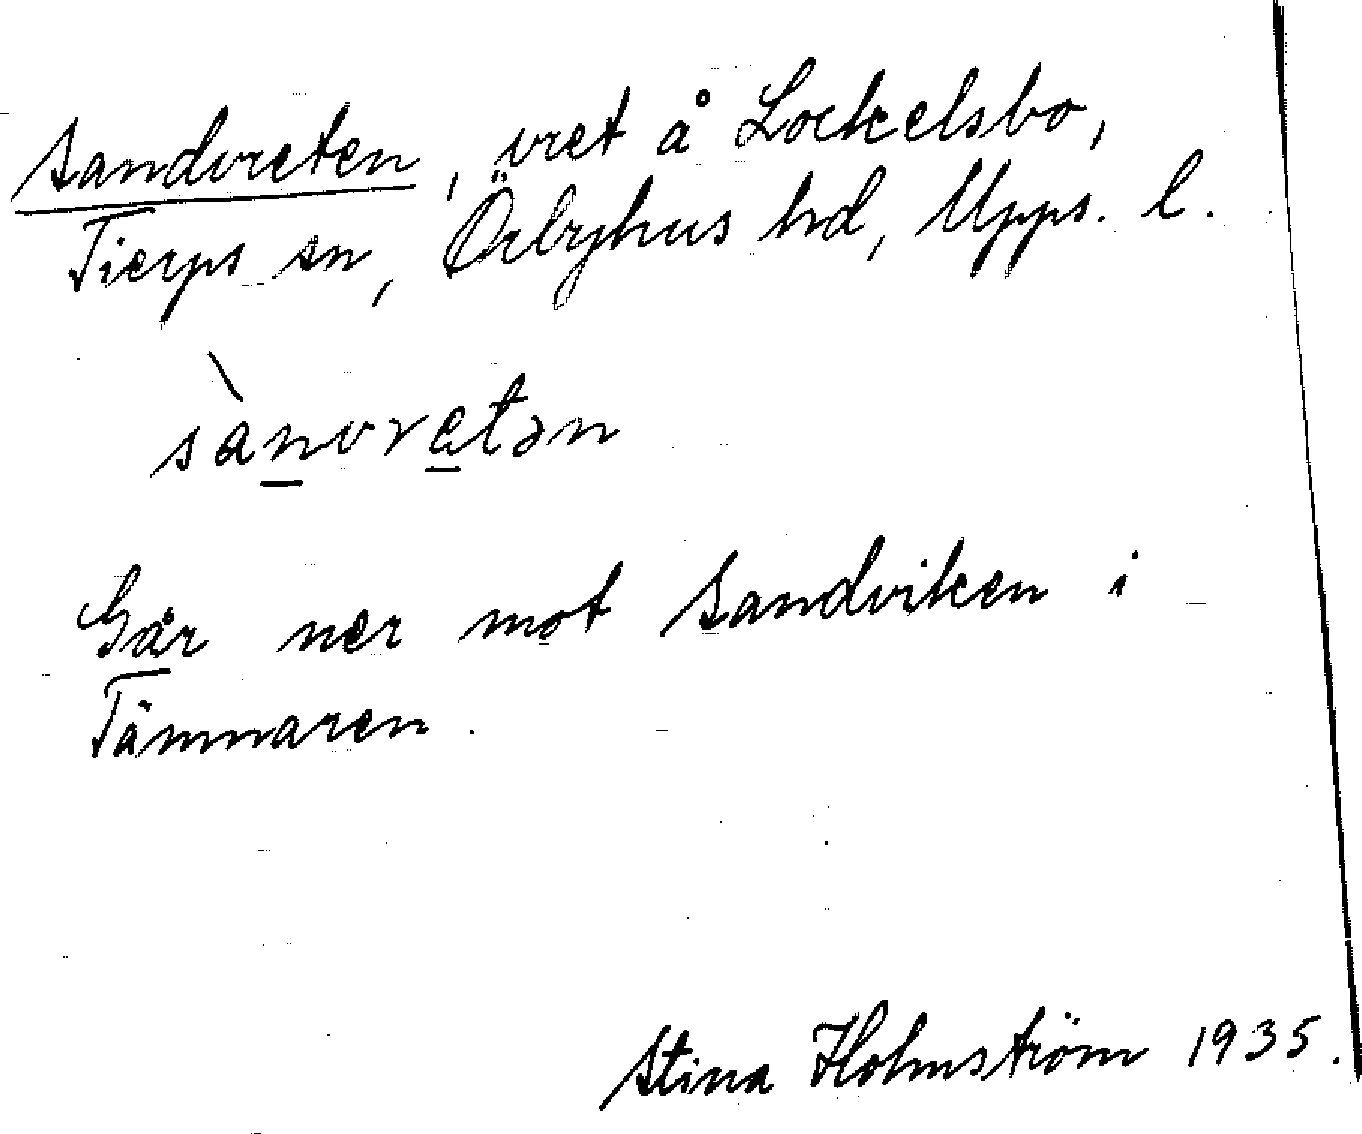 Sandvreten, vret å Lockelsbo,
Tierps sn, Örbyhus hd, Upps. l.
sànvretən
Går ner mot Sandviken i
Tämnaren.
Stina Holmström 1935.